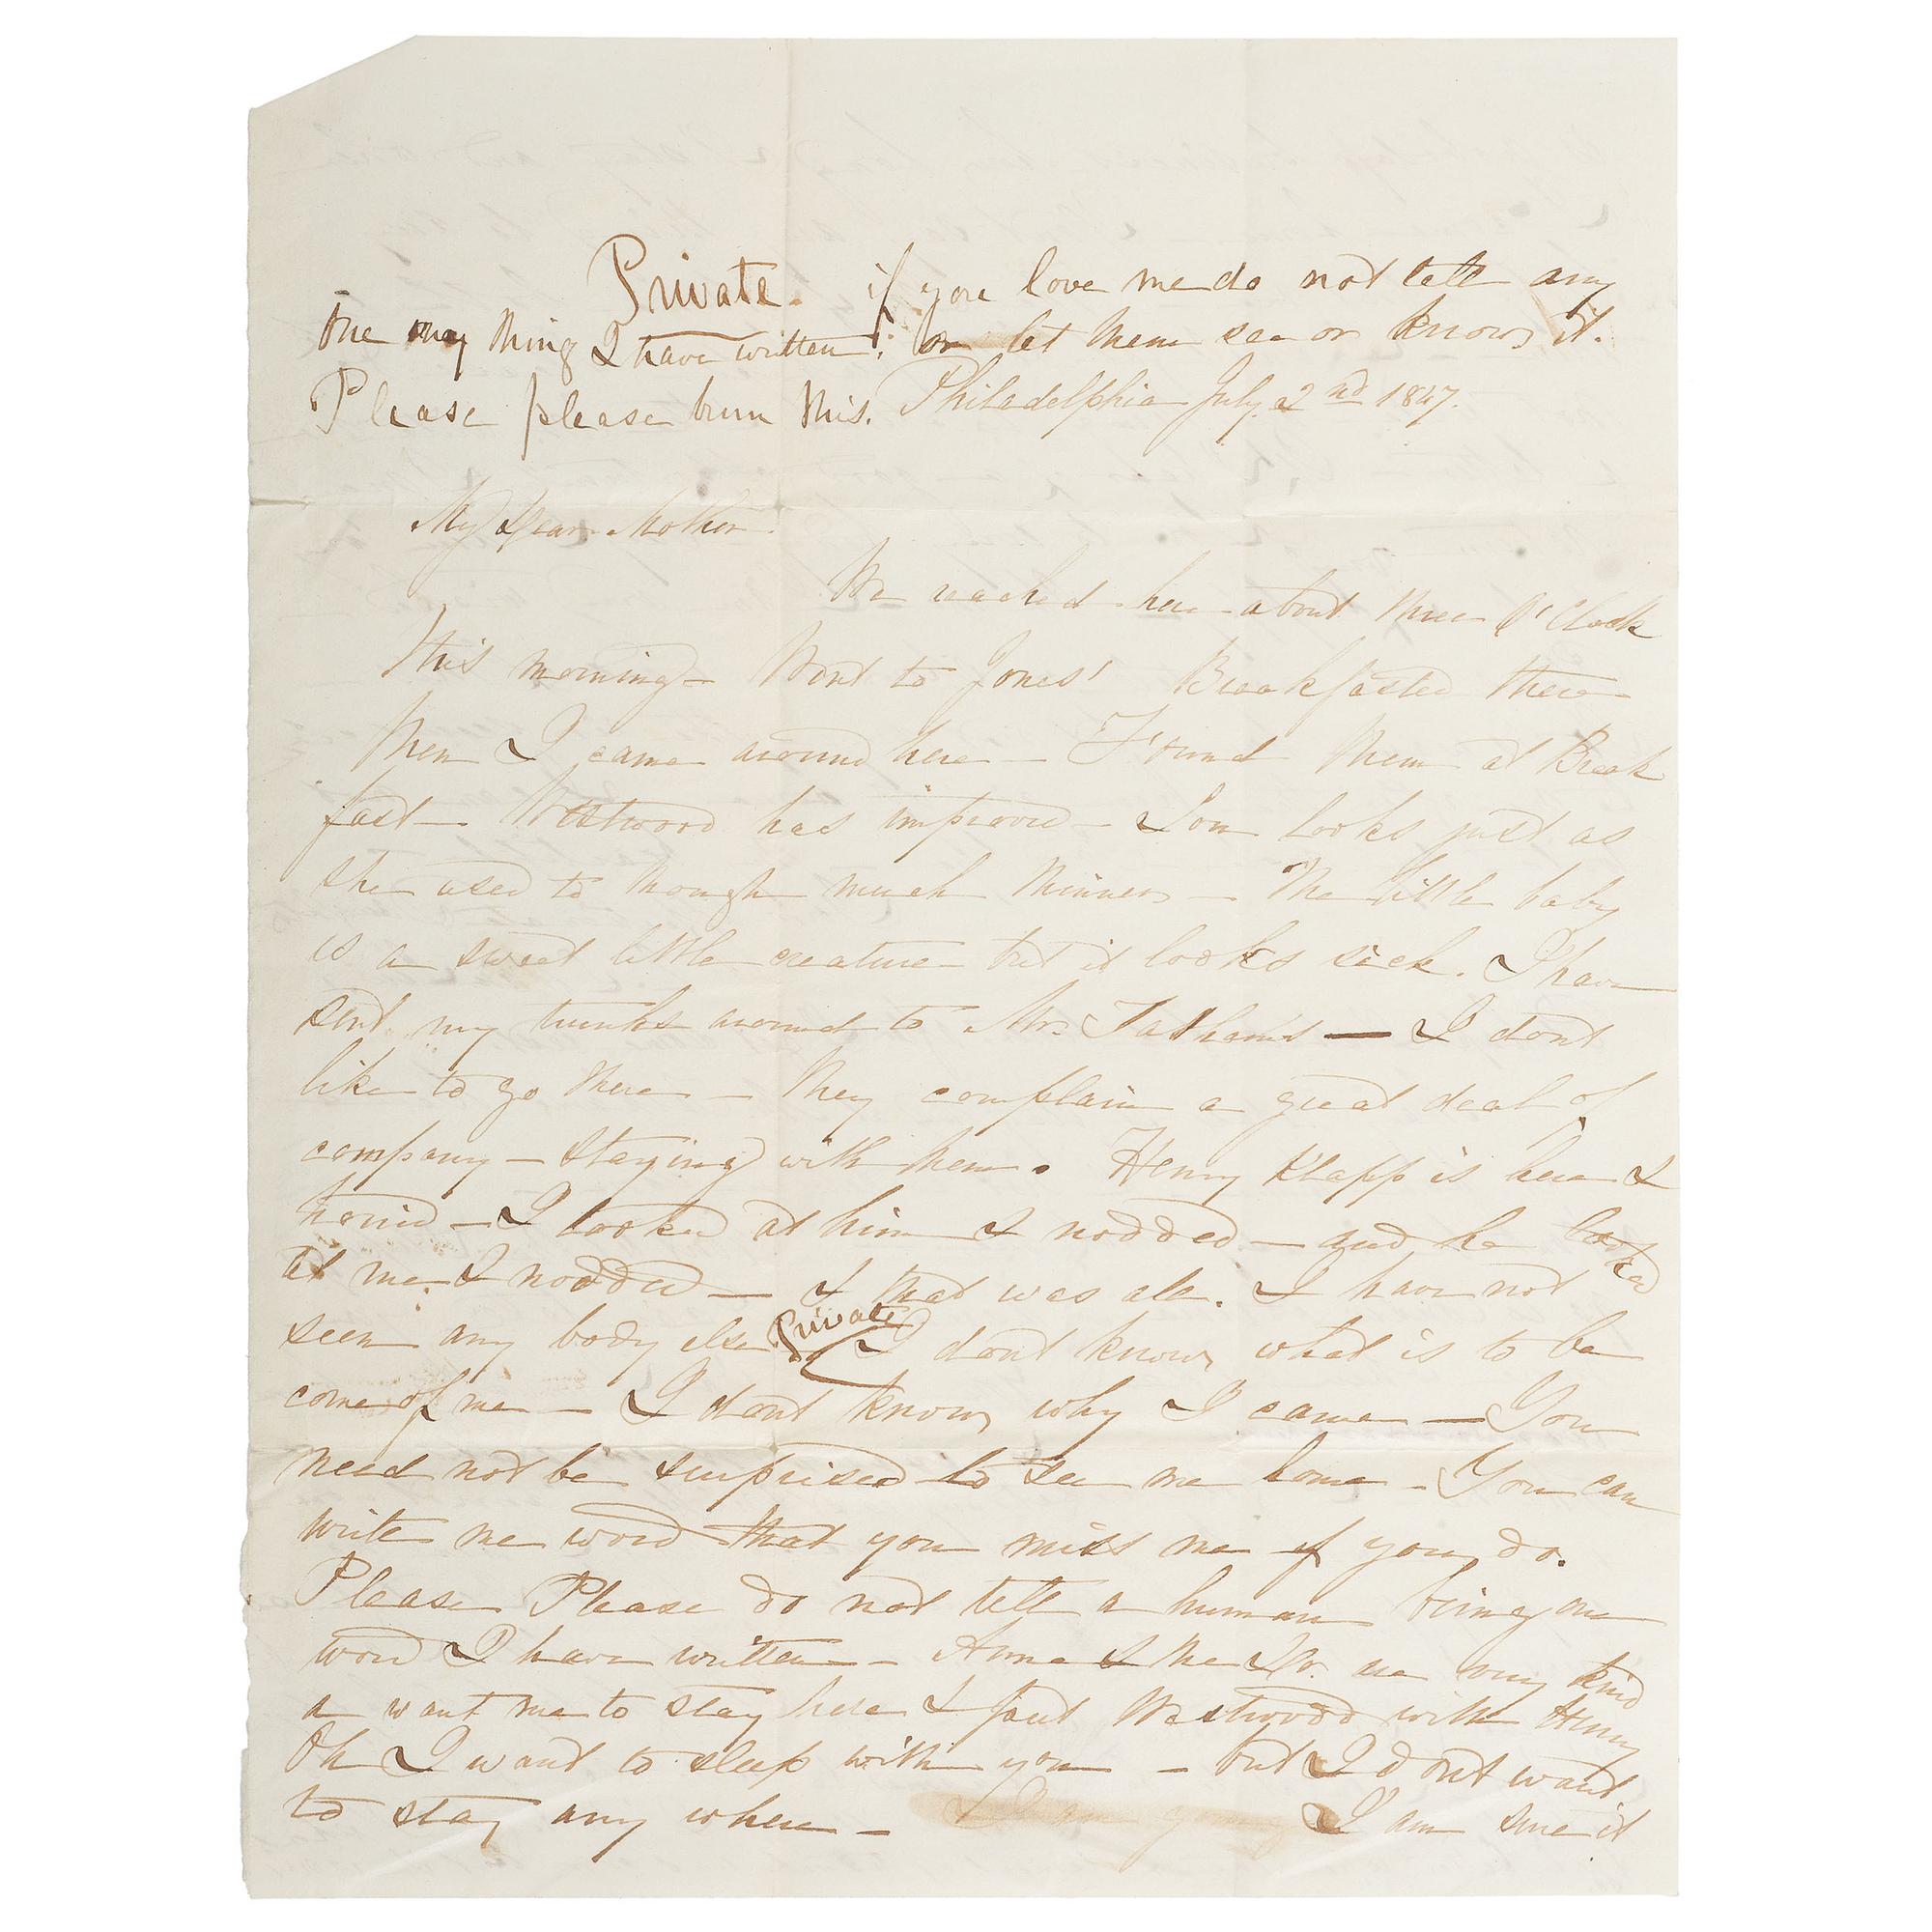 Private. if you love me do not tell any
one any thing I have written; or let them see or know it.
Please please burn this. Philadelphia July 2nd 1847.
My Dear Mother.
We reached here about three O'Clock
this morning — Went to Jones' Breakfasted there
then I came around here — Found them at Break
fast — Westwood has improved — Lou looks just as
she used to though much thinner — The little baby
is a sweet little creature but it looks sick. I have
sent my trunks around to Mrs. Tatham's — I dont
like to go there — they complain a great deal of
company — staying with them. Henry Klapp is here &
horrid — I looked at him & nodded — and he looked
at me & nodded — & that was all. I have not
seen any body else Private I dont know what is to be
come of me — I dont know why I came — You
need not be surprised to see me home — You can
write me word that you miss me if you do.
Please Please do not tell a human being one
word I have written — Anna & the Dr. are very kind
a want me to stay here & put Westwood with Henry
Oh I want to sleep with you — but I dont want
to stay any where — I am sure it